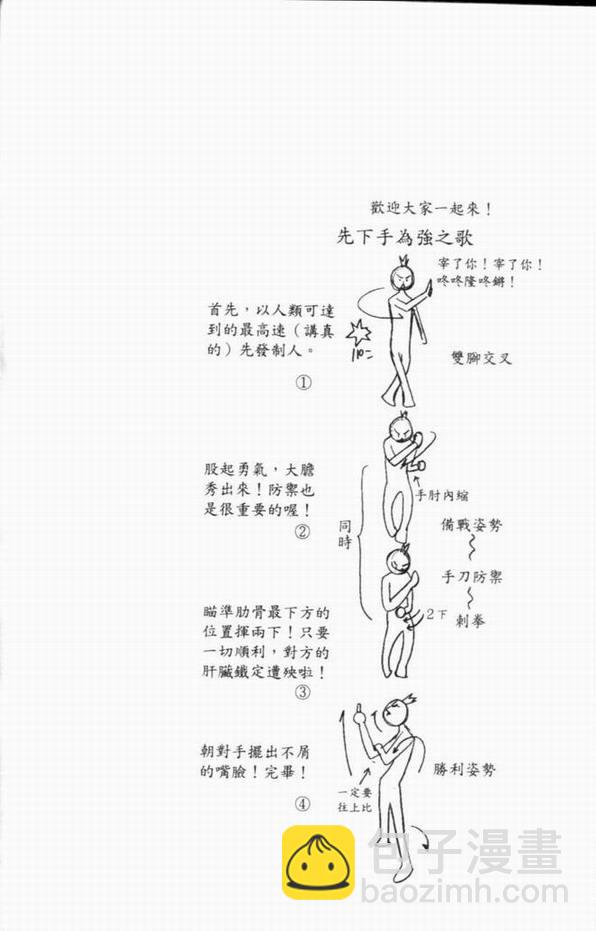 歡迎大家一起來！
先下手為強之歌
宰了你！宰了你！
咚咚隆咚鏘！
首先，以人類可達
到的最高速（講真
的）先發制人。
①
雙腳交叉
股起勇氣，大膽
秀出來！防禦也
是很重要的喔！
②
手肘內縮
同時
備戰姿勢
手刀防禦
2下
刺拳
瞄準肋骨最下方的
位置揮兩下！只要
一切順利，對方的
肝臟鐵定遭殃啦！
③
朝對手擺出不屑
的嘴臉！完畢！
④
一定要
往上比
勝利姿勢
包子漫畫
baozimh.com